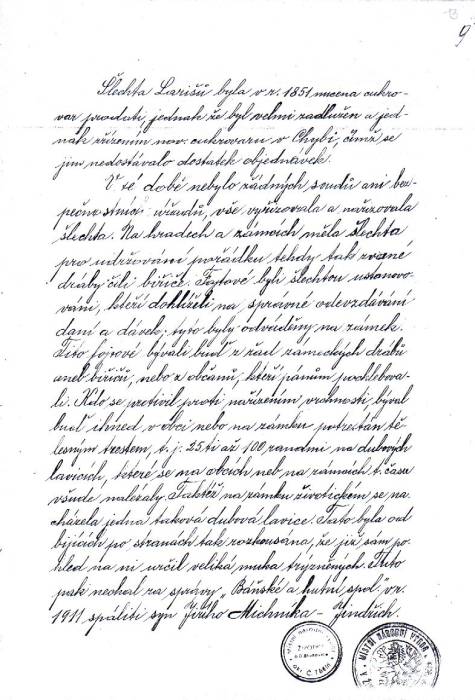 9
Šlechta Larišů byla v r. 1851 nucena cukro-
var prodati, jednak že byl velmi zadlužen a jed-
nak zřízením nov. cukrovaru v Chybí, čímž se
jim nedostávalo dostatek objednávek.
V té době nebylo žádných soudů ani bez-
pečnostních úřadů, vše vyřizovala a nařizovala
šlechta. Na hradech a zámcích měla šlechta
pro udržování pořádku tehdy tak zvané
dráby čili biřice. Fojtové byli šlechtou ustanovo-
váni, kteří dohlíželi na správné odevzdávání
daní a dávek; tyto byly odváděny na zámek.
Tito fojtové bývali buď z řad zámeckých drábů
aneb biřiců, nebo z občanů, kteří pánům pochlebova-
li. Kdo se protivil proti nařízením vrchnosti býval
buď ihned v obci nebo na zámku potrestán tě-
lesným trestem, t. j. 25 ti až 100 ranami na dubových
lavicích, které se na obcích neb na zámcích t. času
všude nalézaly. Taktéž na zámku životickém se na-
cházela jedna taková dubová lavice. Tato byla od
bijících po stranách tak rozkousána, že již sám po-
hled na ni určil veliká muka trýzněných. Tuto
pak nechal za správy „Báňské a hutní spol" v r.
1911 spáliti syn Jiřího Michnika - Jindřich.
MÍSTNÍ NÁRODNÍ VÝBOR